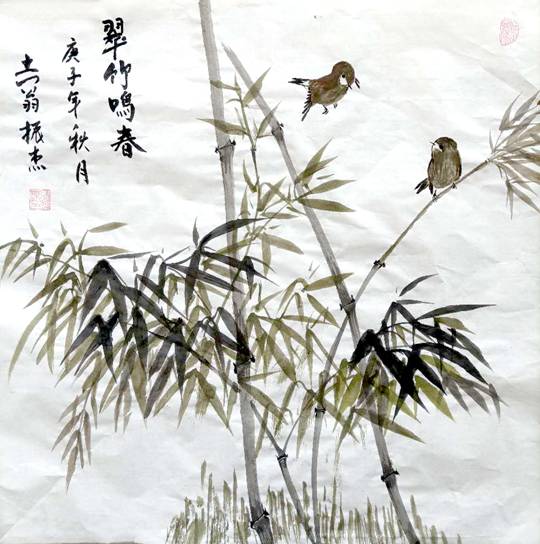 翠竹鸣春
庚子年秋月
土翁振杰